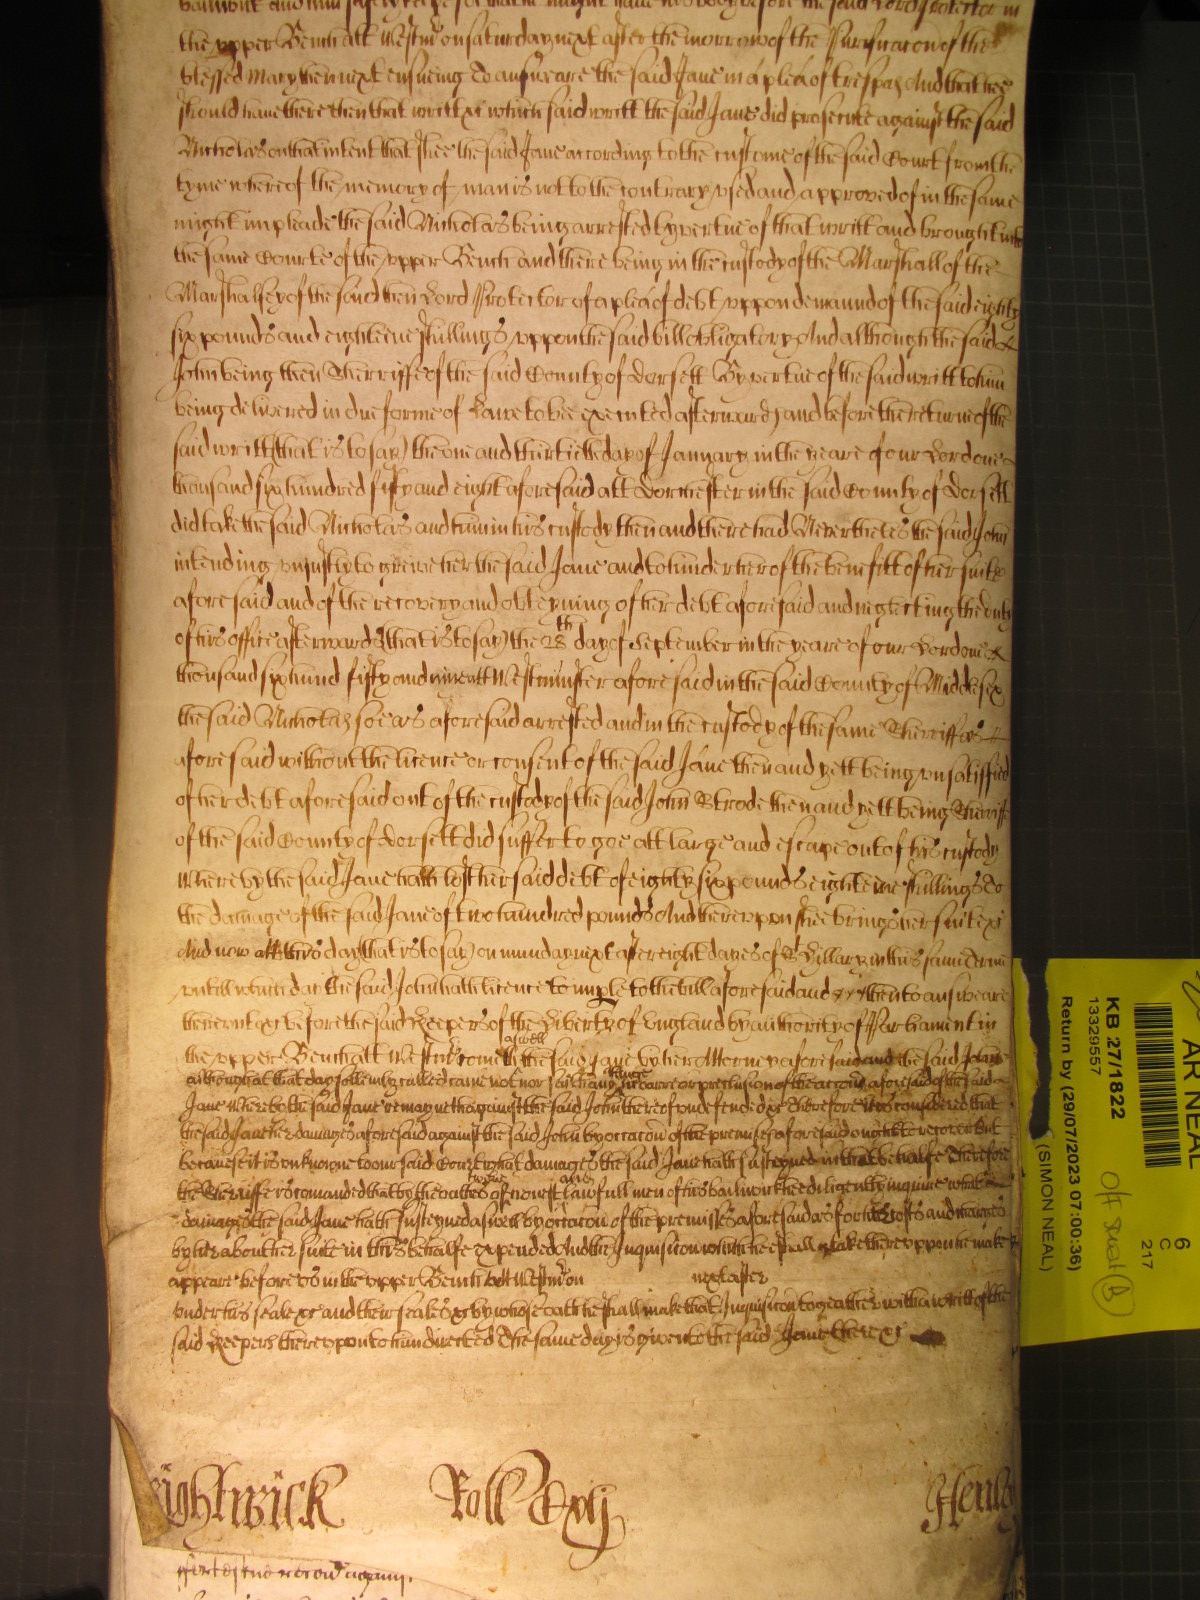 baliwick and him safely keepe soe that he might have his body before the said Lord Protector in
the upper Bench att Westm on saturday next after the morrow of the Purificacon of the
blessed Mary then next ensueing to answeare the said Jane in a plea of trespas And that hee
should have there then that writt xc which said writt the said Jane did prosecute against the said
Nicholas on that intent that shee the said Jane according to the custome of the said Court from the
tyme whereof the memory of man is not to the contrary used and approved of in the same
might impleade the said Nicholas being arrested by vertue of that writt and brought into
the same Courte of the upper Bench and there being in the custody of the Marshall of the
Marshalsey of the said then Lord Protector of a plea of debt uppon demaund of the said eighty
six pounds and eighteene shillings uppon the said bill obligatory And although the said
John being then Sherriffe of the said County of Dorsett By vertue of the said writt to him
being delivered in due forme of Lawe to bee executed afterwards and before the returne of the
said writt (that is to say) the one and thirtieth day of January in the yeare of our Lord one
thousand six hundred fifty and eight aforesaid att Dorchester in the said County of Dorsett
did take the said Nicholas and him in his custody then and there had Neverthelesse the said John
intending unjustly to greive her the said Jane and to hinder her of the benefitt of her suite
aforesaid and of the recovery and obteyning of her debt aforesaid and neglecting the duty
of his office afterwards (that is to say) the 28th day of September in the yeare of our Lord one
thousand six hund fifty and nine att Westminster aforesaid in the said County of Middlesex
the said Nicholas soe as aforesaid arrested and in the custody of the same Sherriffe as
aforesaid without the licence or consent of the said Jane then and yett being unsatisfied
of her debt aforesaid out of the custody of the said John Strode then and yett being Sherriffe
of the said County of Dorsett did suffer to goe att large and escape out of his custody
Whereby the said Jane hath lost her said debt of eighty six pounds eighteene shillings To
the damage of the said Jane of two hundred pounds And thereuppon shee brings her suite xc
And now att this day (that is to say) on munday next after eight dayes of St Hillary in this same terme
untill which day the said John hath licence to imple to the bill aforesaid and then to answeare
thereunto xc before the said Keepers of the Liberty of England by authority of Parliament in
the upper Bench att Westm come aswell the said Jane by her Attorney aforesaid and the said John
although at that day sollemly called came not nor saith any thinge in barre or preclusion of the accon aforesaid of the said
Jane Whereby the said Jane remayneth against the said John thereof undefended xc Therefore it is considered that
the said Jane her damages aforesaid against the said John by occacon of the premisses aforesaid ought to recover But
because it is unknowne to our said Court what damages the said Jane hath susteyned in that behalfe Therefore
the Sherriffe is comanded that by the oathes of twelve honest and lawfull men of his bailiwick hee diligently inquire what
damages the said Jane hath susteyned aswell by occacon of the premisses aforesaid as for her costs and charges
by her about her suite in this behalfe expended And the Inquisicon which hee shall take thereuppon he make
appeare before us in the upper Bench att Westm on next after
under his seale xc and their seales xc by whose oath he shall make that Inquisicon togeather with a writt of the
said Keepers thereuppon to him directed The same day is given to the said Jane there xc
ightwick Roll Cxlj Henley
KB 27/1822
13329557
Return by (29/07/2023 07:00:36)
(SIMON NEAL)
AR NEAL
6
C
217